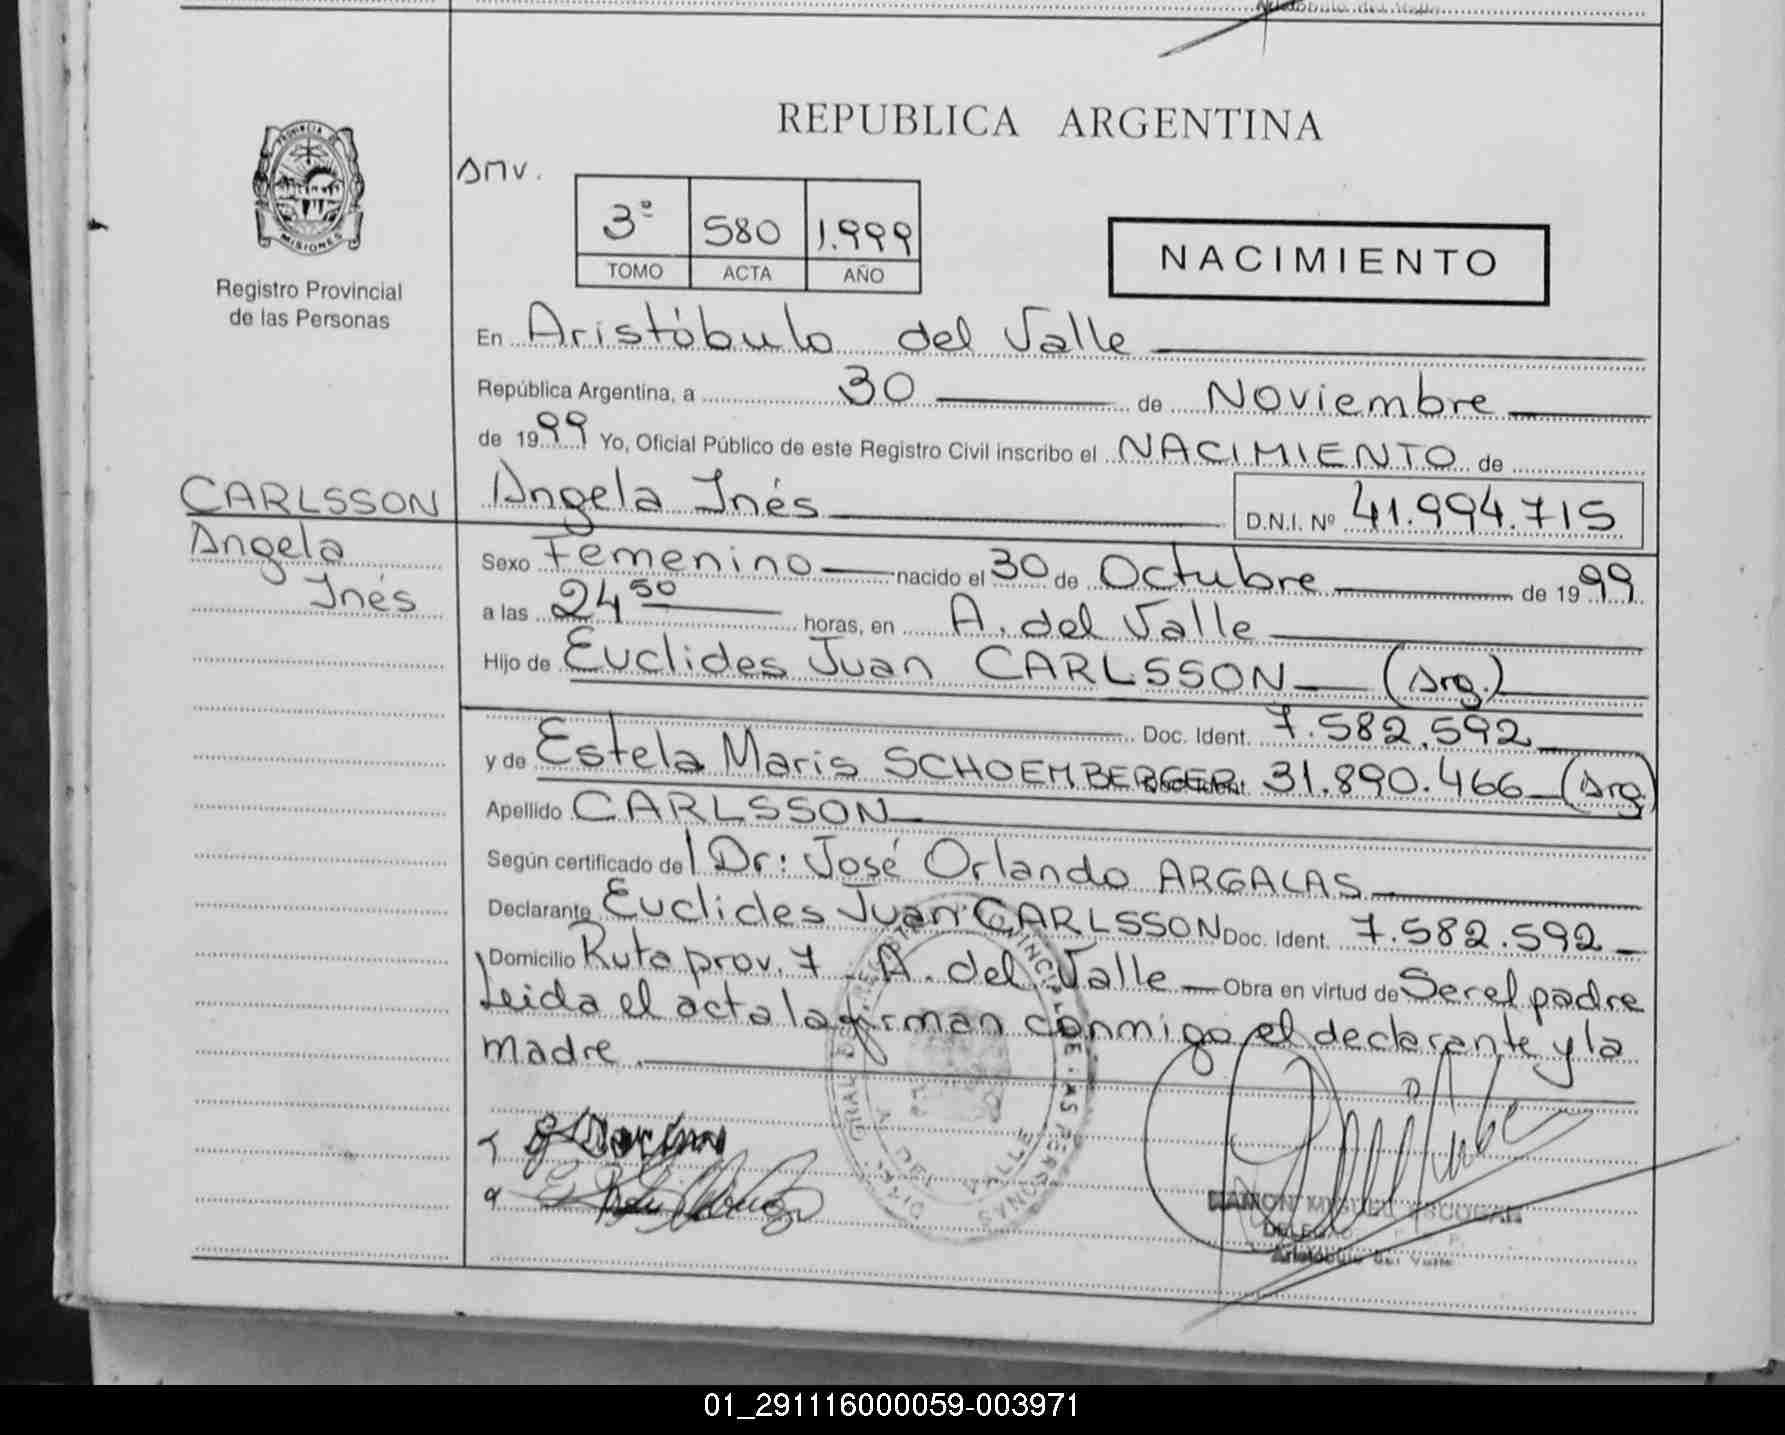 REPUBLICA ARGENTINA
PROVINCIA DE
MISIONES
Registro Provincial
de las Personas
3º 580 1.999
TOMO ACTA AÑO
NACIMIENTO
En Aristóbulo del Valle
República Argentina, a 30 de Noviembre
de 1999 Yo, Oficial Público de este Registro Civil inscribo el NACIMIENTO de
CARLSSON
Angela
Inés
Angela Inés D.N.I. Nº 41.994.715
Sexo Femenino nacido el 30 de Octubre de 1999
a las 24 50 horas, en A. del Valle
Hijo de Euclides Juan CARLSSON (Arg.)
Doc. Ident. 7.582.592
y de Estela Maris SCHOEMBERGER Doc. Ident. 31.890.466 (Arg
Apellido CARLSSON
Según certificado del Dr: José Orlando ARGALAS
Declarante Euclides Juan CARLSSON Doc. Ident. 7.582.592
Domicilio Ruta prov. 7 A. del Valle Obra en virtud de Ser el padre
Leida el acta la firman conmigo el declarante y la
madre.
RAMON MIGUEL ESCOBAR
Aristóbulo del Valle
01_291116000059-003971